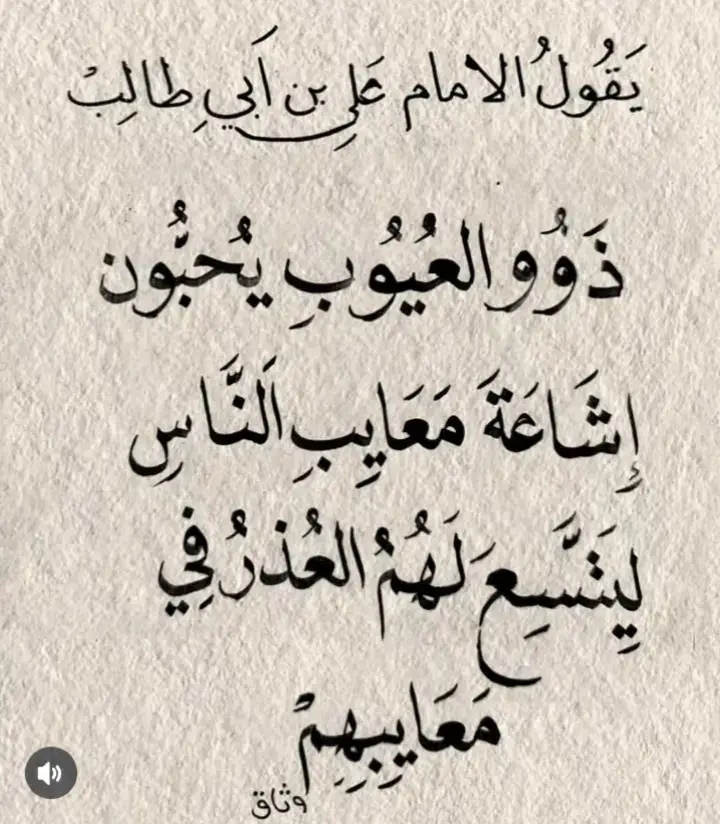 يَقُولُ الامام عَلي بن أَبي طالِبْ
ذَوُو العُيُوبِ يُحبُّون
إِشَاعَةَ مَعَايِبِ اَلنَّاسِ
لِيَتَّسِعَ لَهُمُ العُذرُ فِي
مَعَايِبِهِمْ
وثاق